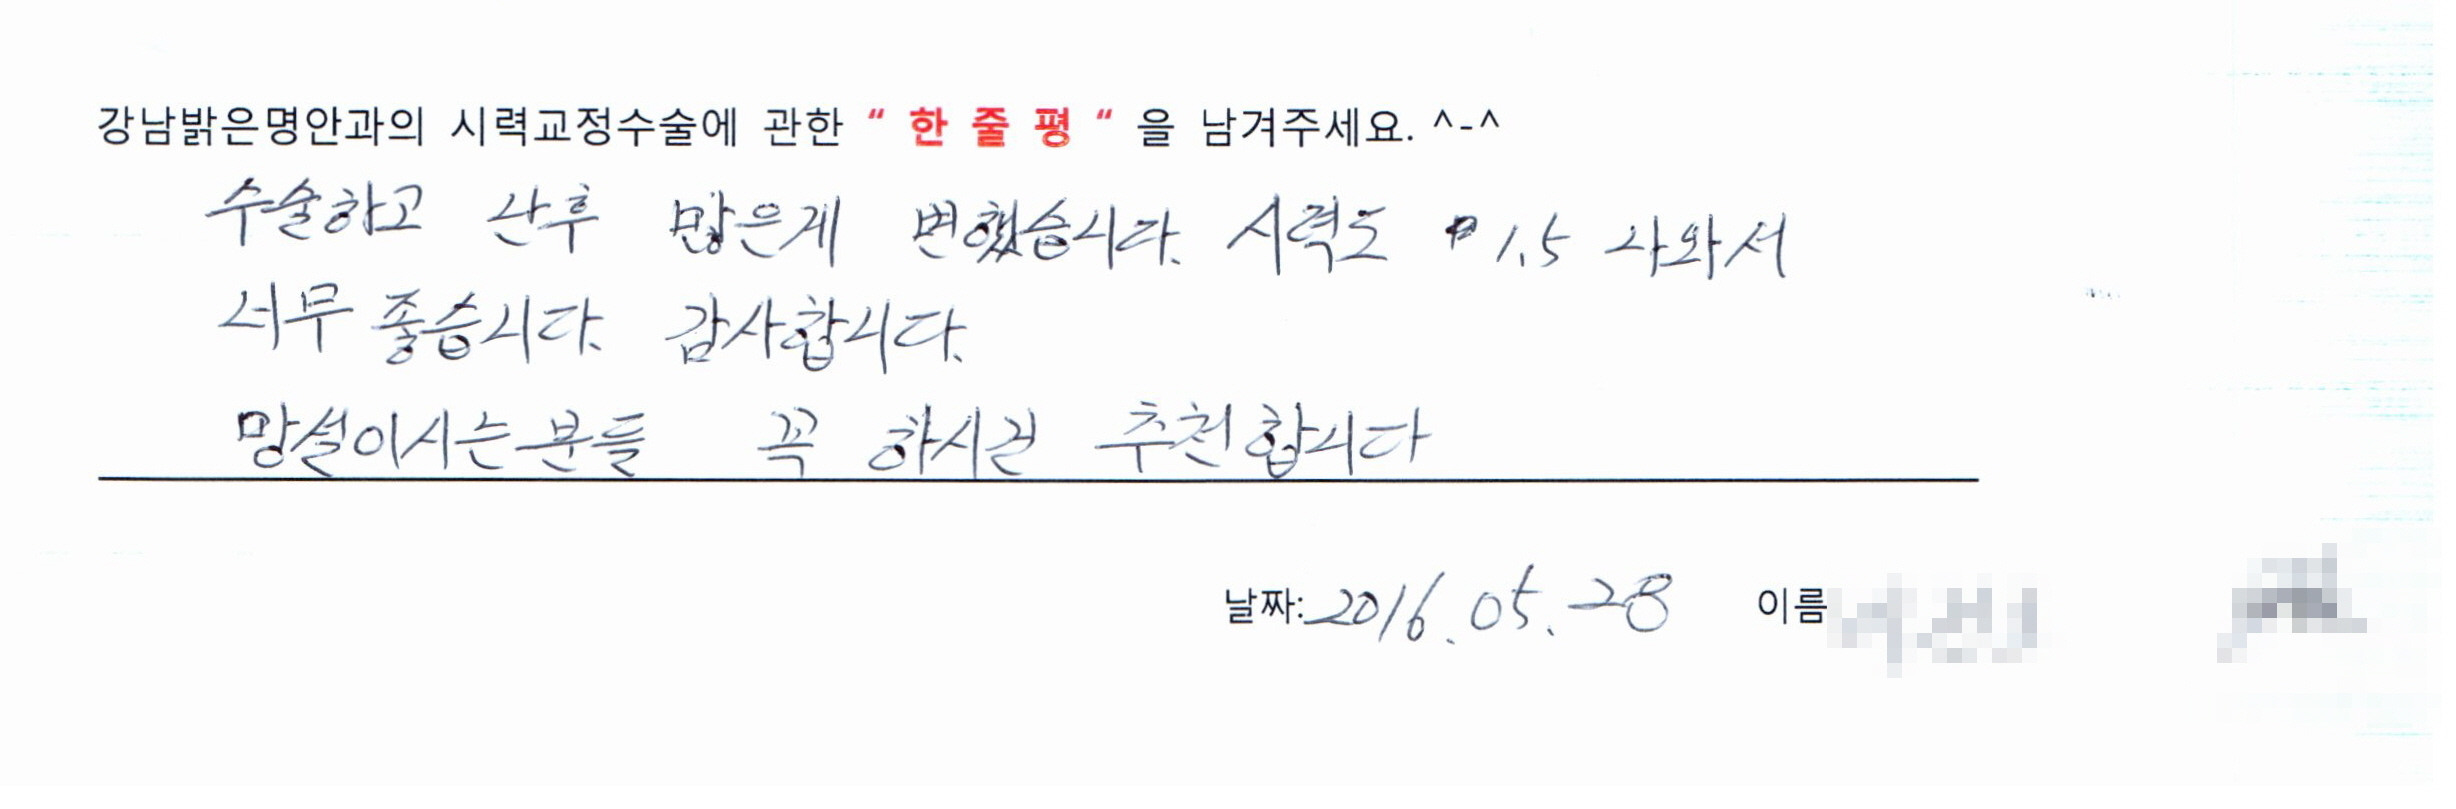 강남밝은명안과의 시력교정수술에 관한 " 한 줄 평 " 을 남겨주세요. ^-^
수술하고 난후 많은게 변했습니다. 시력도 1.5 나와서
너무 좋습니다. 감사합니다.
망설이시는분들 꼭 하시길 추천합니다
날짜: 2016.05.28 이름